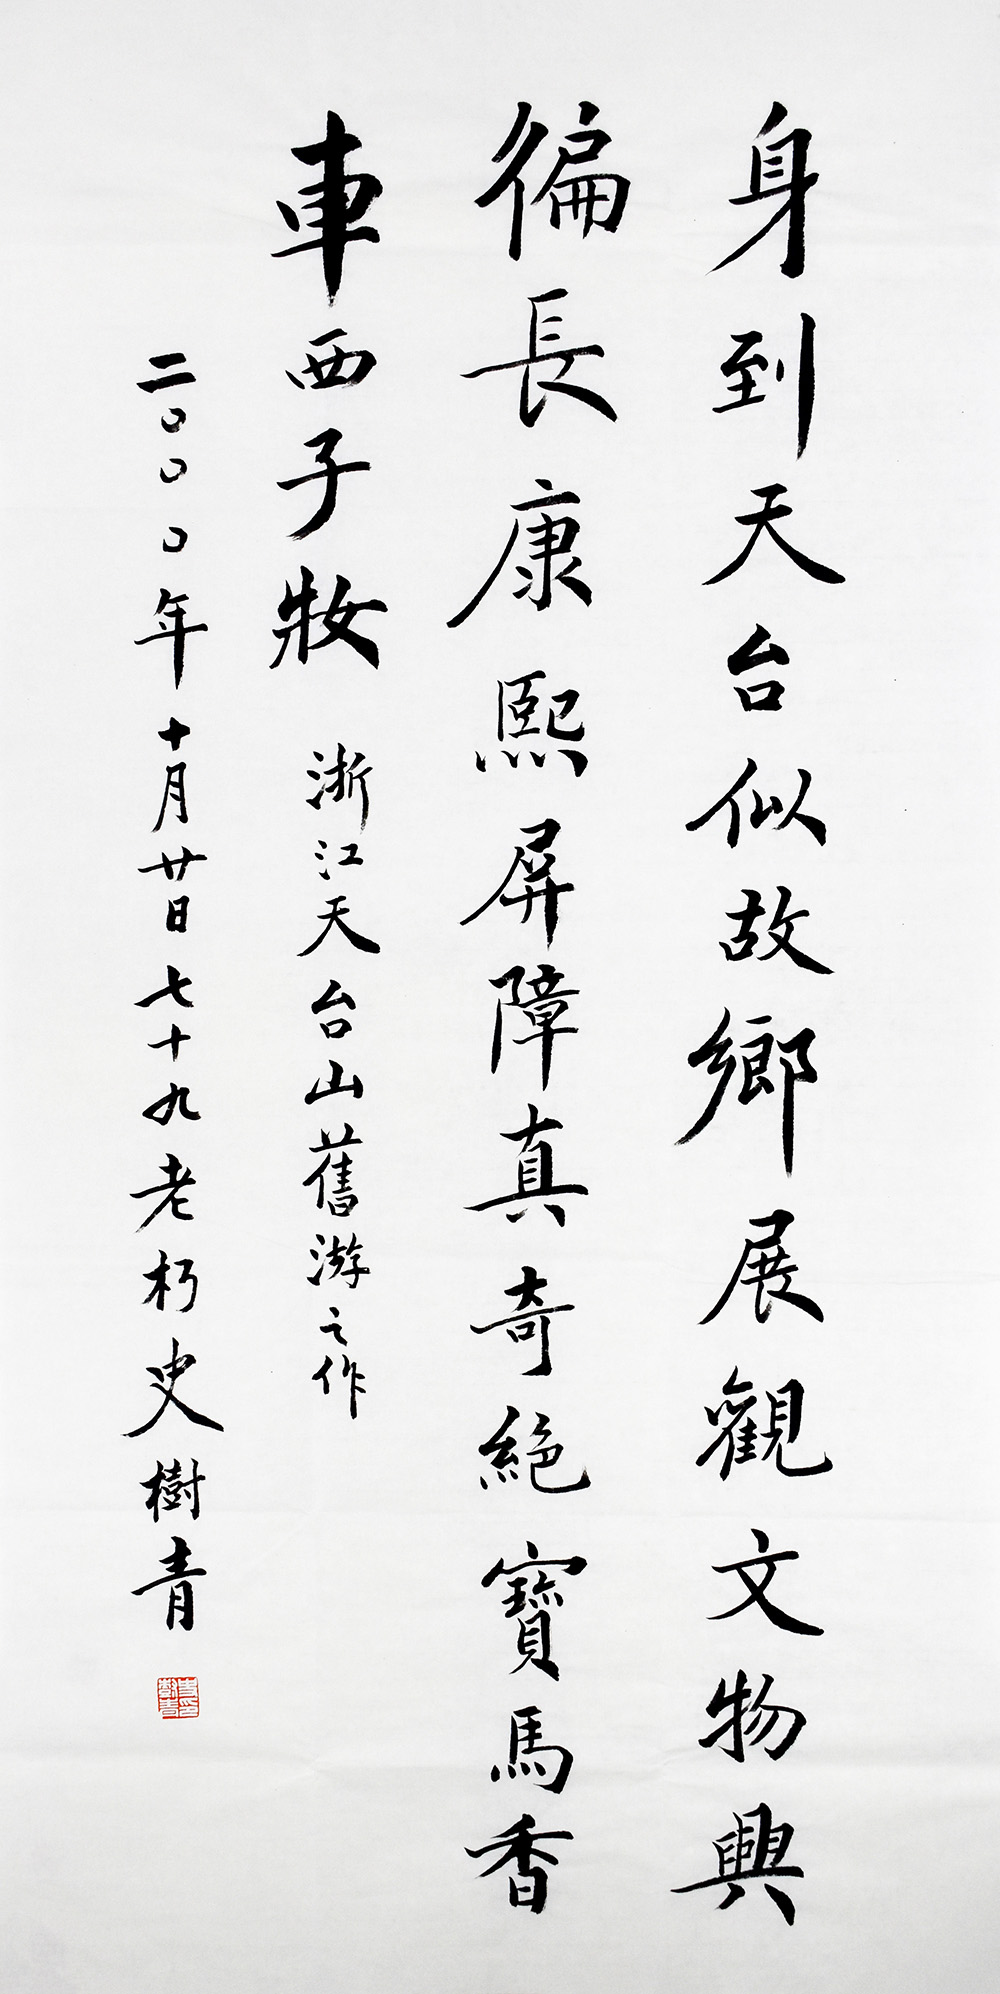 身到天台似故鄉展觀文物興
徧長康熙屏障真奇絕寶馬香
車西子妝 浙江天台山舊游之作
二〇〇〇年十月廿日七十九老朽史樹青
史樹青印